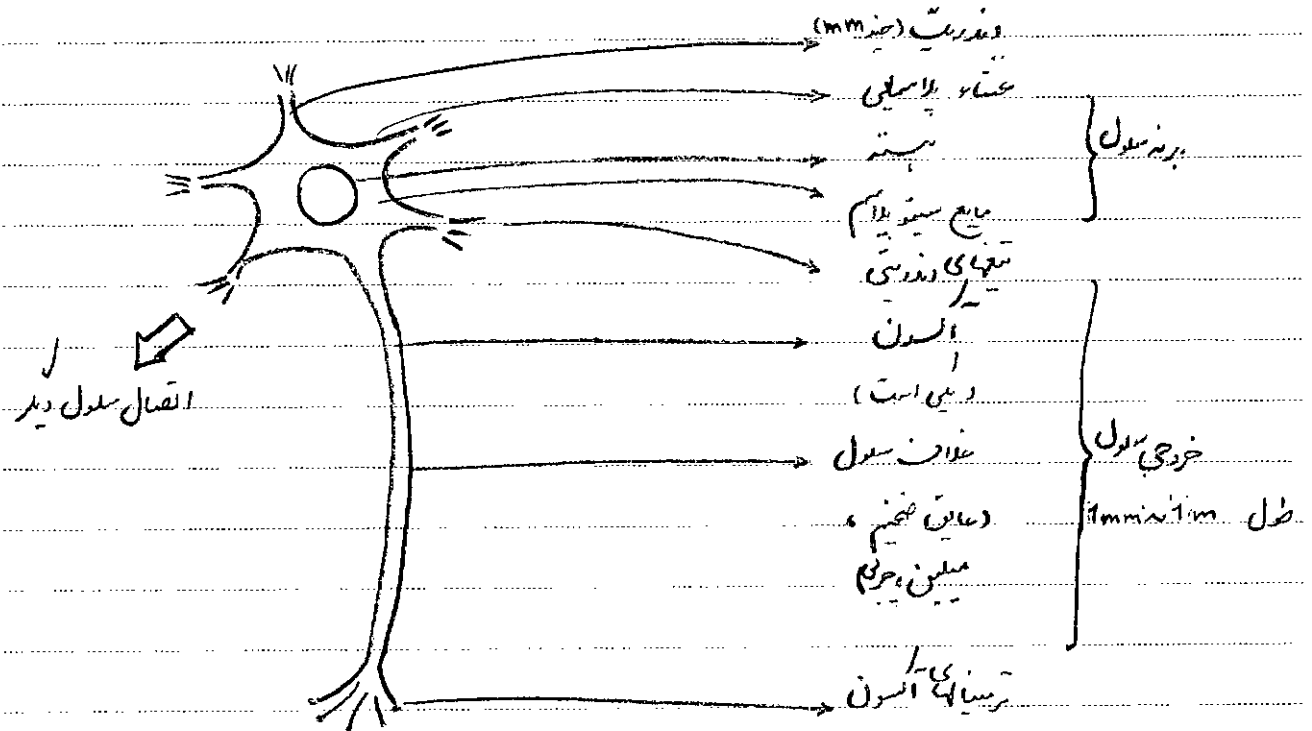 دندریت (چند mm)
غشاء پلاسمایی
هسته
مایع سیتوپلاسم
بدنه سلول
تیغهای دندریتی
آکسون
(یکی است)
غلاف سلول
(عایق ضخیم،
میلین، چربی)
خروجی سلول
طول 1mm~1m
ترمینالهای آکسون
اتصال سلول دیگر